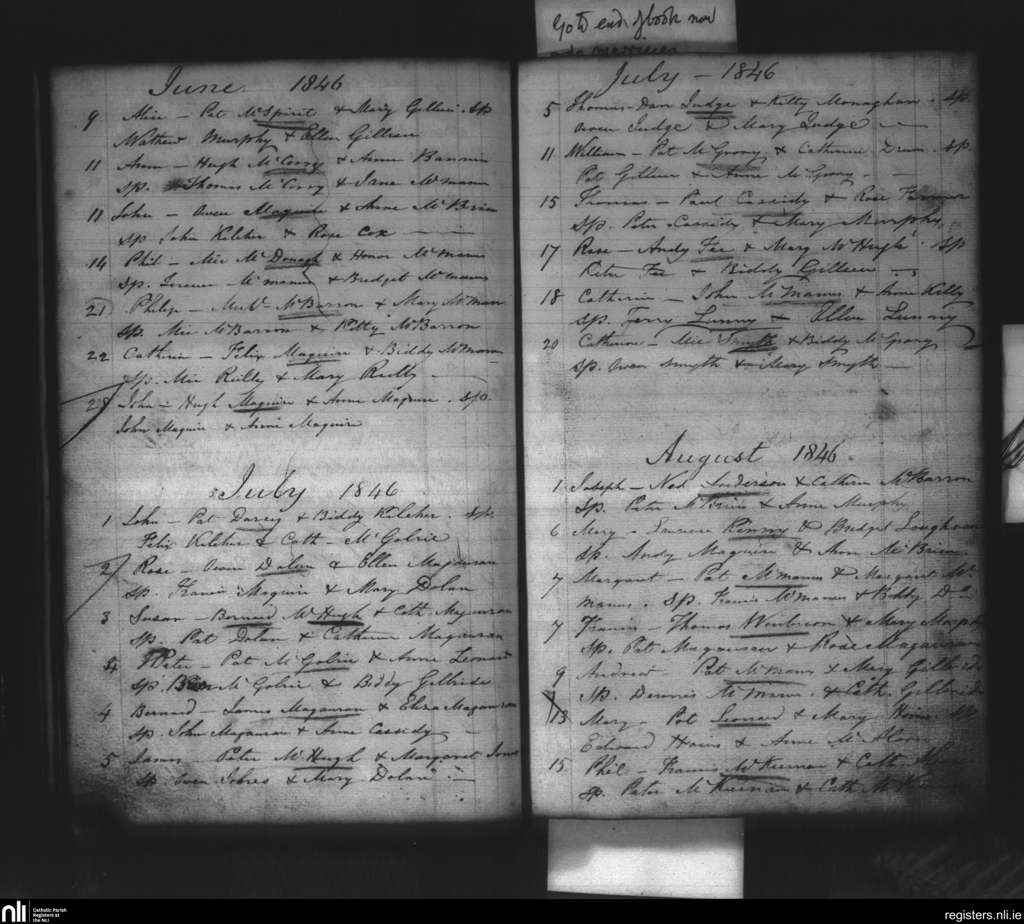 Go to end of book now
June 1846
9 Mic - Pat McSpirit & Mary Gilleic. Sp
Mathew Murphy & Ellen Gilleece
11 Anne - Hugh McCorry & Anne Bannin
Sp. Thomas McCorry & Jane McManus
11 John - Owen Maguire & Anne McBrien
Sp. John Kilcher & Rose Cox
14 Phil - Mic McDonagh & Honor McManus
Sp. Terence McManus & Bridget McManus
21 Philip - McBarron & Mary McManus
Sp. Mic McBarron & Kitty McBarron
22 Cathrin - Felix Maguire & Biddy McManus
Sp. Mic Reilly & Mary Reilly
28 John - Hugh Maguire & Anne Maguire. Sp.
John Maguire & Anne Maguire
July 1846
1 John - Pat Darcy & Biddy Kilcher. Sp.
Felix Kilcher & Cath - McGolric
2 Rose - Owen Dolan & Ellen Magauran
Sp. Francis Maguire & Mary Dolan
3 Susan - Bernard McHugh & Cath. Magauran
Sp. Pat Dolan & Catherine Magauran
4 Peter - Pat McGolric & Anne Leonard
Sp. McGolric & Biddy Gilbride
4 Bernard - James Magauran & Eliza Magauran
Sp. John Magauran & Anne Cassidy
5 James - Peter McHugh & Margaret Jones
Sp Owen Jones & Mary Dolan
July - 1846
5 Thomas - Dan Judge & Kitty Monaghan. Sp.
Owen Judge & Mary Judge
11 William - Pat McGrory & Catherine Drum. Sp.
Pat Gilleece & Anne McGrory
15 Thomas - Paul Cassidy & Rose
Sp. Peter Cassidy & Mary Murphy
17 Rose - Andy Fee & Mary McHugh. Sp
Peter Fee & Biddy Gilleece
18 Catherin - John McManus & Anne Kelly
Sp. Terry Lunny & Ellen Lunny
20 Catherine - Mic Smyth & Biddy McGrory
Sp. Owen Smyth & Mary Smyth
August 1846
1 Joseph - Ned Anderson & Catherin McBarron
Sp. Peter & Anne Murphy
6 Mary - Terence Kenny & Bridget Loughran
Sp. Andy Maguire & Anne McBrien
7 Margaret - Pat McManus & Margaret Mc
Manus. Sp. Francis McManus & Biddy
7 Francis - Thomas & Mary Murphy
Sp. Pat Magauran & Rose Magauran
9 Andrew Pat McManus & Mary Gilbride
Sp. Dennis McManus & Cath. Gilbride
13 Mary - Pat Leonard & Mary Sp
Edward & Anne
15 Phil - Francis McKiernan & Cath
Sp. Peter McKiernan & Cath
nli
Catholic Parish
Registers at
the NLI
registers.nli.ie